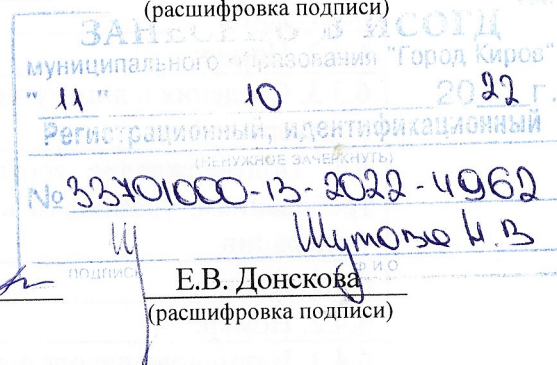 (расшифровка подписи)
ЗАНЕСЕНО В ИСОГД
муниципального образования "Город Киров"
" 11 " 10 2022 г.
Регистрационный, идентификационный
(НЕНУЖНОЕ ЗАЧЕРКНУТЬ)
№ 33701000-13-2022-4962
Шутова Н.В
ПОДПИСЬ Ф И О
Е.В. Донскова
(расшифровка подписи)